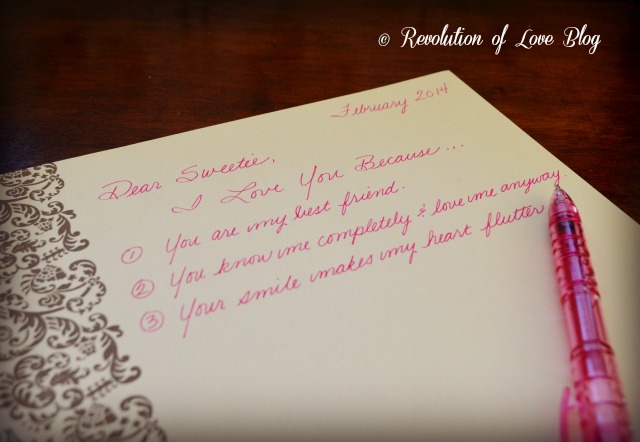 © Revolution of Love Blog
February 2014
Dear Sweetie,
I Love You Because...
① You are my best friend.
② You know me completely & love me anyway.
③ Your smile makes my heart flutter